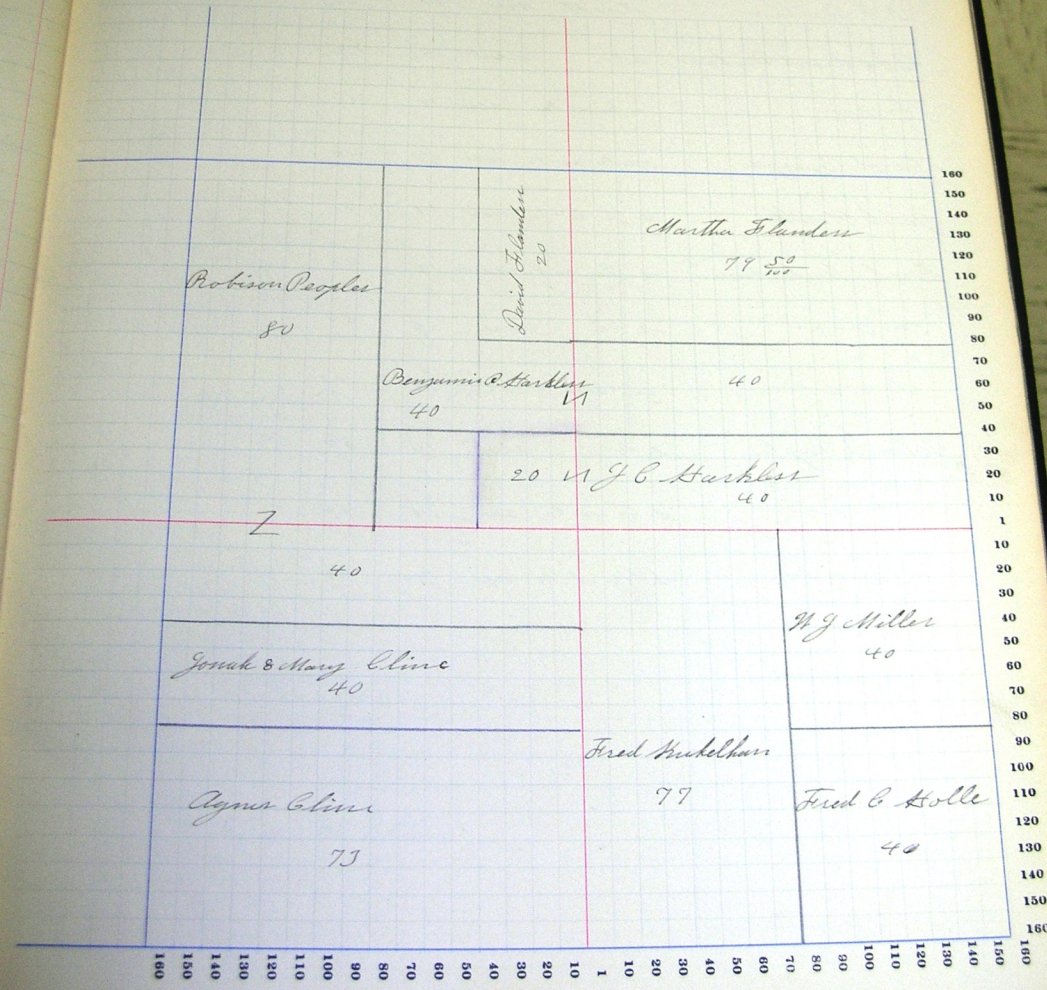 Martha Flanders
79 50/100
David Flanders
20
Robison Peoples
80
Benjamin C Harkless
40
40
20 J C Harkless
40
Z
40
Jonah & Mary Cline
40
W J Miller
40
Fred
77
Agnes Cline
73
Fred C Holle
40
160
150
140
130
120
110
100
90
80
70
60
50
40
30
20
10
1
10
20
30
40
50
60
70
80
90
100
110
120
130
140
150
160
160 150 140 130 120 110 100 90 80 70 60 50 40 30 20 10 1 10 20 30 40 50 60 70 80 90 100 110 120 130 140 150 160